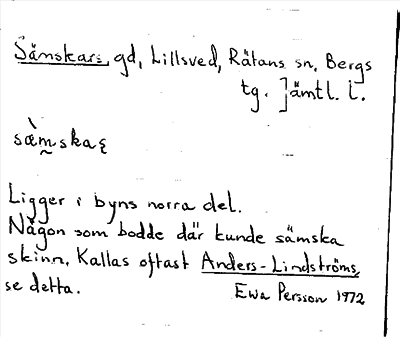 Sämskars, gd, Lillsved, Rätans sn, Bergs
tg. Jämtl. l.
sæ̀m̰skaꞩ
Ligger i byns norra del.
Någon som bodde där kunde sämska
skinn. Kallas oftast Anders-Lindströms,
se detta.
Ewa Persson 1972